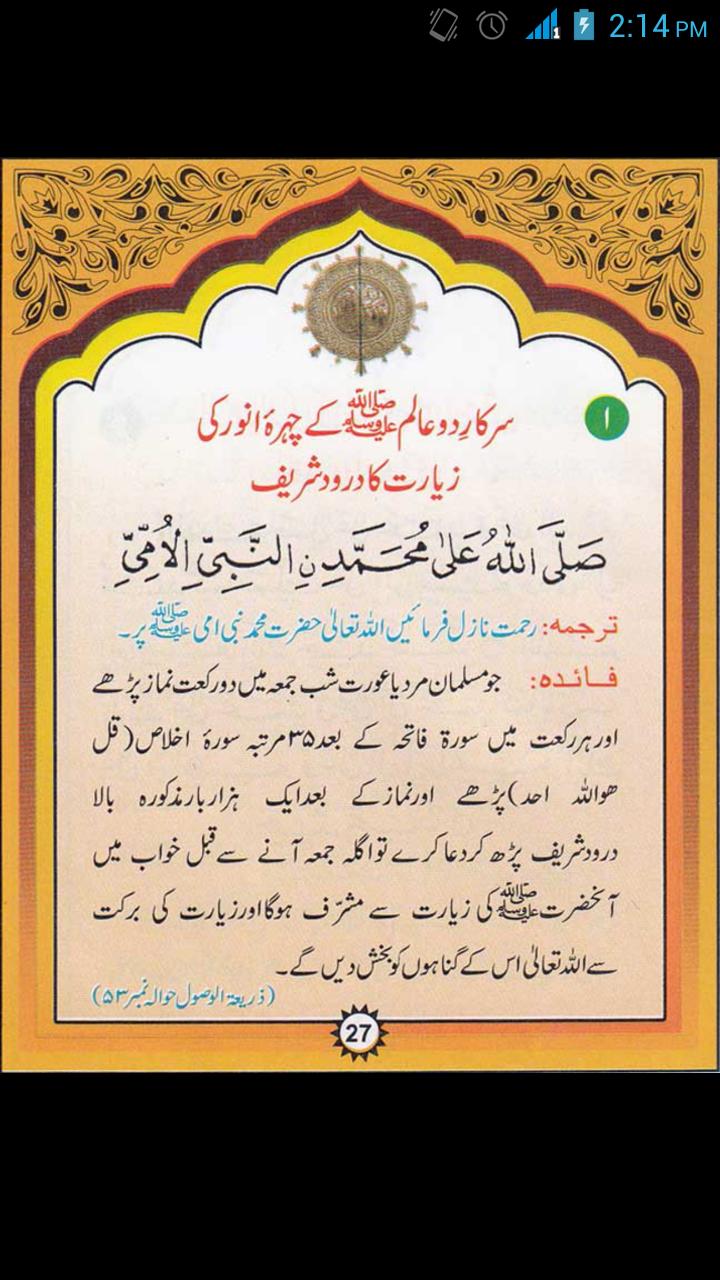 2:14 PM
۱
سرکارِ دو عالم ﷺ کے چہرۂ انور کی
زیارت کا درود شریف
صَلَّی اللّٰہُ عَلٰی مُحَمَّدِ نِ النَّبِیِّ الْاُمِّیِّ
ترجمہ: رحمت نازل فرمائیں اللہ تعالیٰ حضرت محمد نبی امی ﷺ پر۔
فائدہ: جو مسلمان مرد یا عورت شب جمعہ میں دو رکعت نماز پڑھے
اور ہر رکعت میں سورۃ فاتحہ کے بعد ۳۵ مرتبہ سورۂ اخلاص (قل
ھواللہ احد) پڑھے اور نماز کے بعد ایک ہزار بار مذکورہ بالا
درود شریف پڑھ کر دعا کرے تو اگلہ جمعہ آنے سے قبل خواب میں
آنحضرت ﷺ کی زیارت سے مشرّف ہوگا اور زیارت کی برکت
سے اللہ تعالیٰ اس کے گناہوں کو بخش دیں گے۔
(ذریعۃ الوصول حوالہ نمبر ۵۳)
27